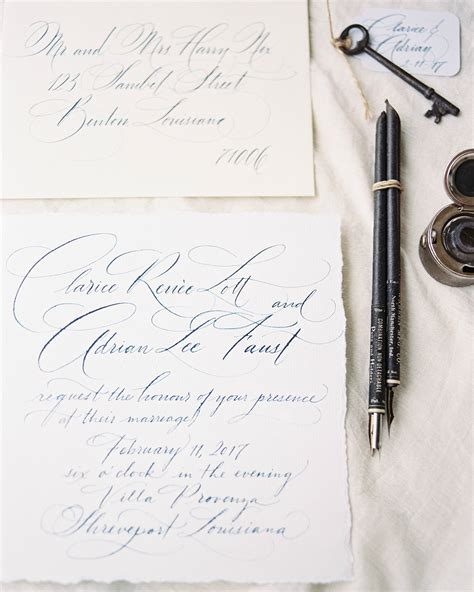 Mr and Mrs Harry Nex
123 Sanbel Street
Benton Louisiane
71006
Clarice &
Adrian
2·11·17
Clarice Renèe Lott
and
Adrian Lee Faust
request the honour of your presence
at their marriage
February 11, 2017
six o'clock in the evening
Villa Provenza
Shreveport Louisiana